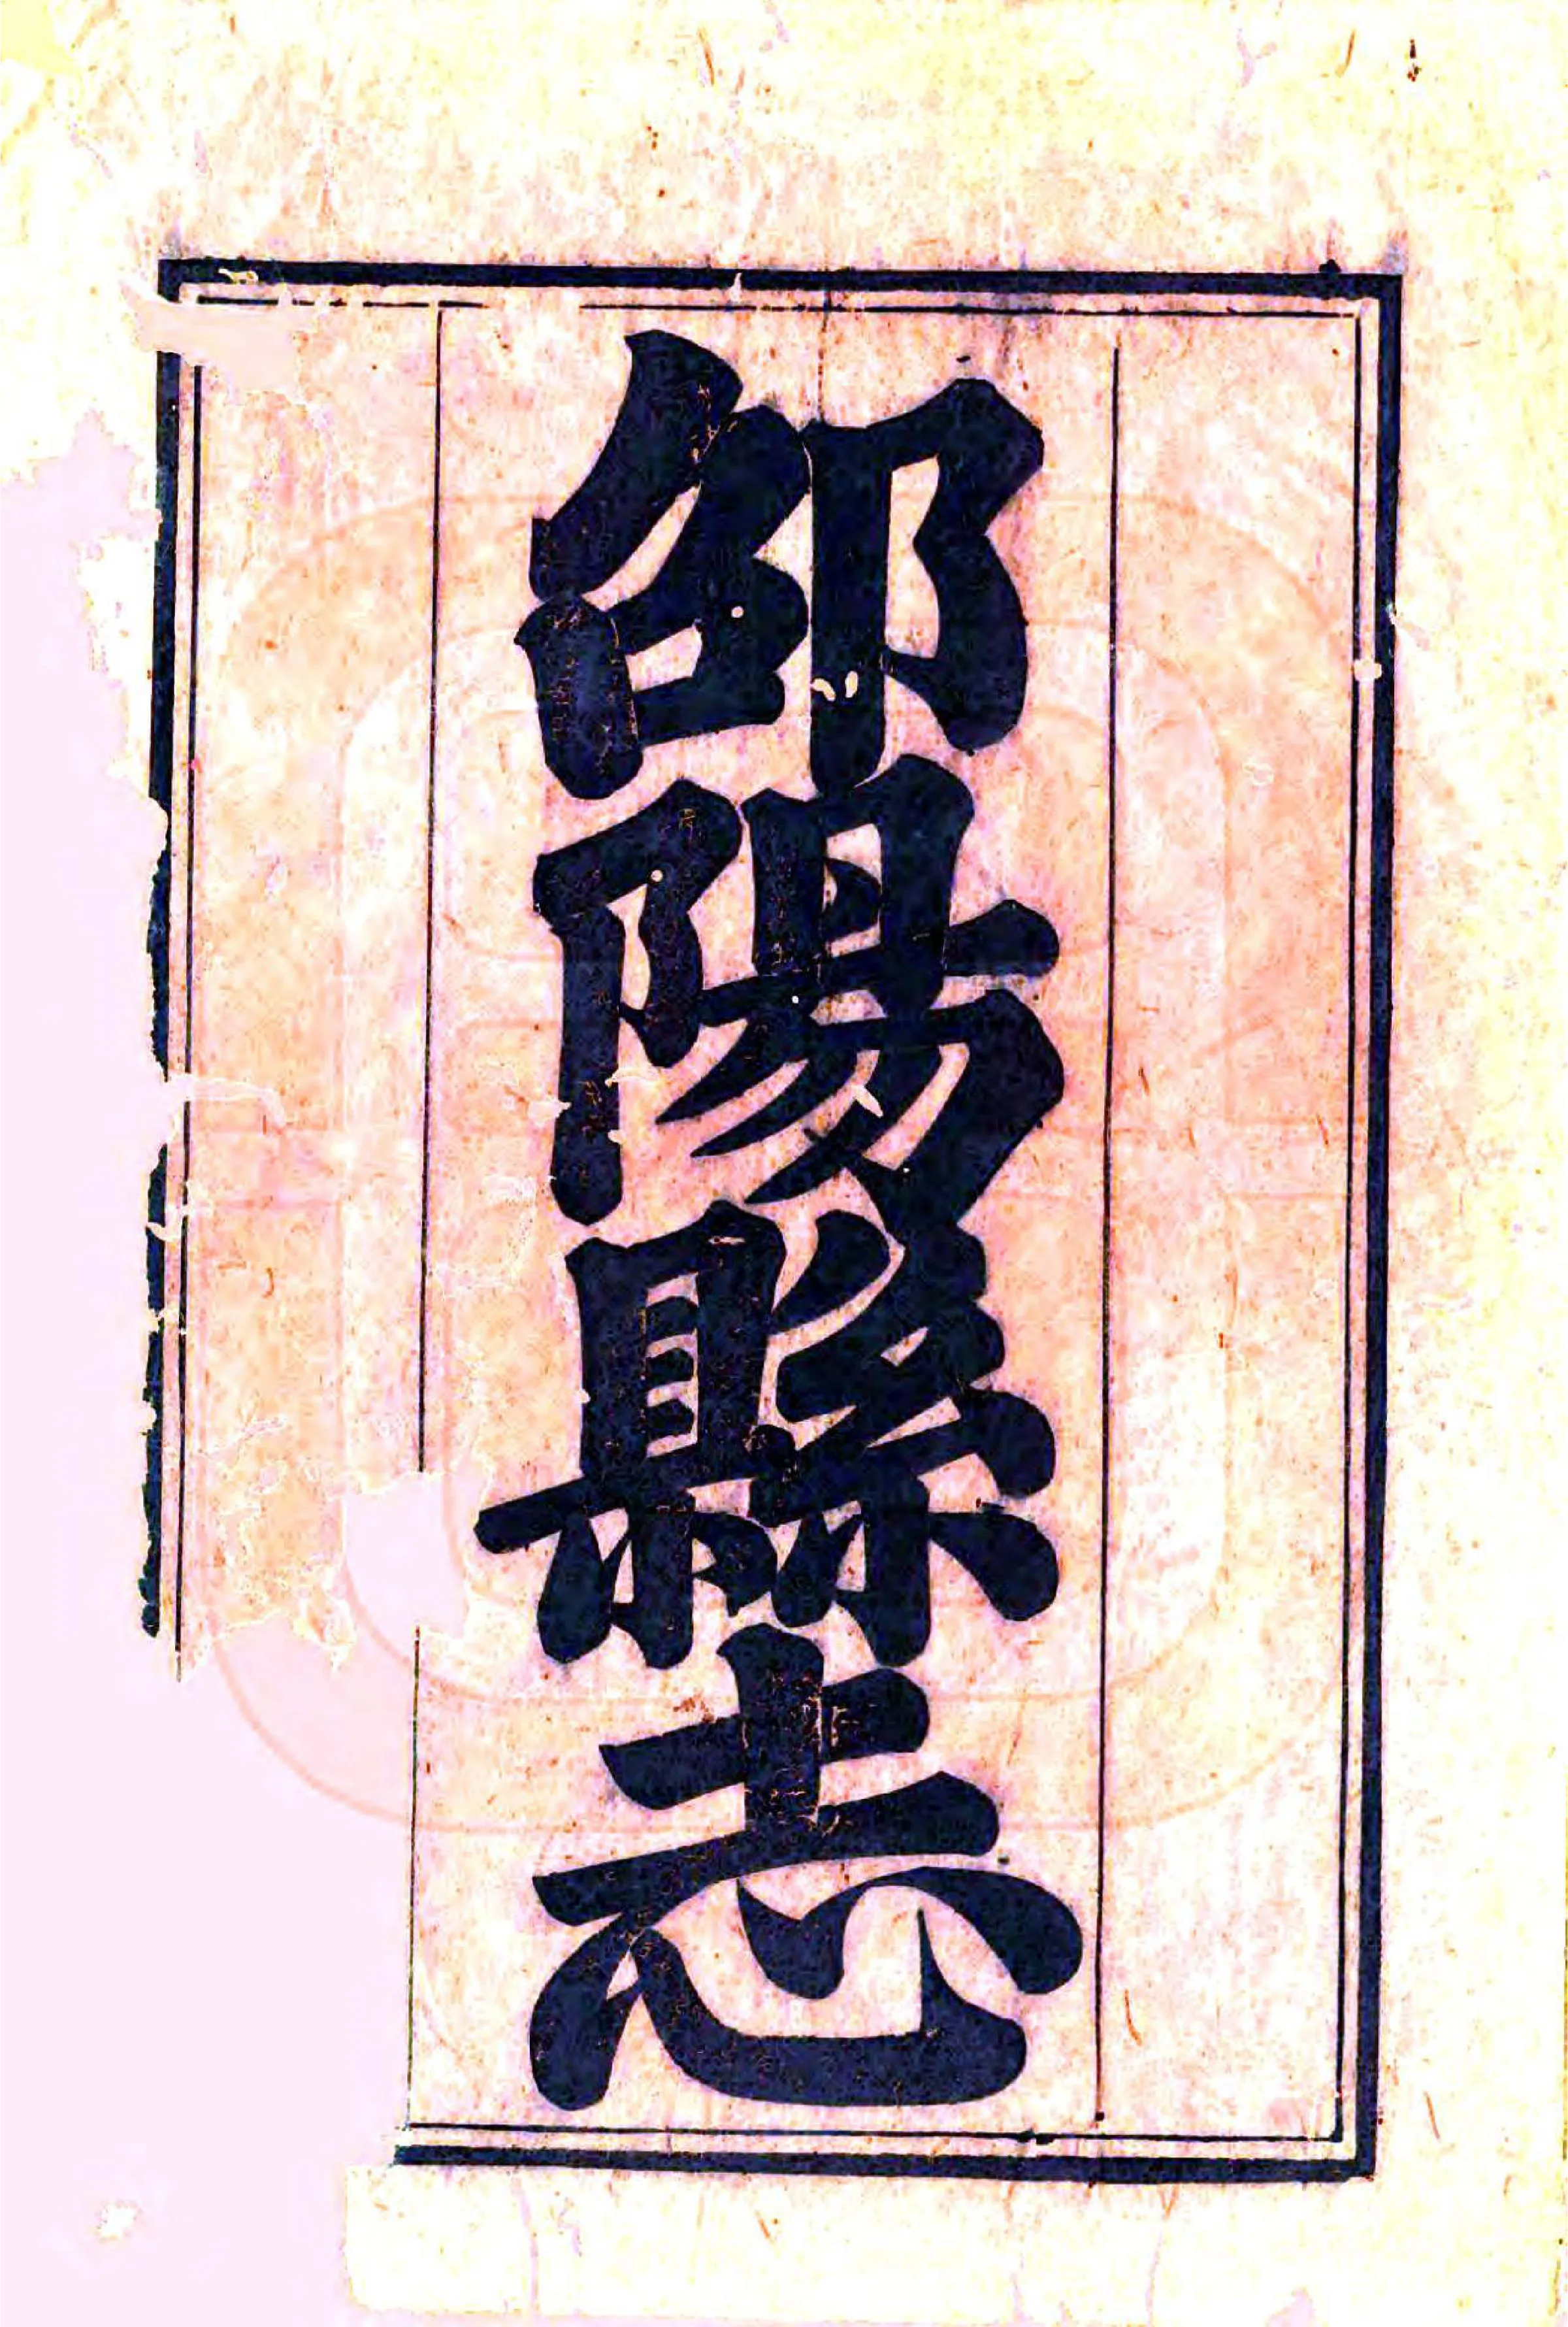 邵陽縣志